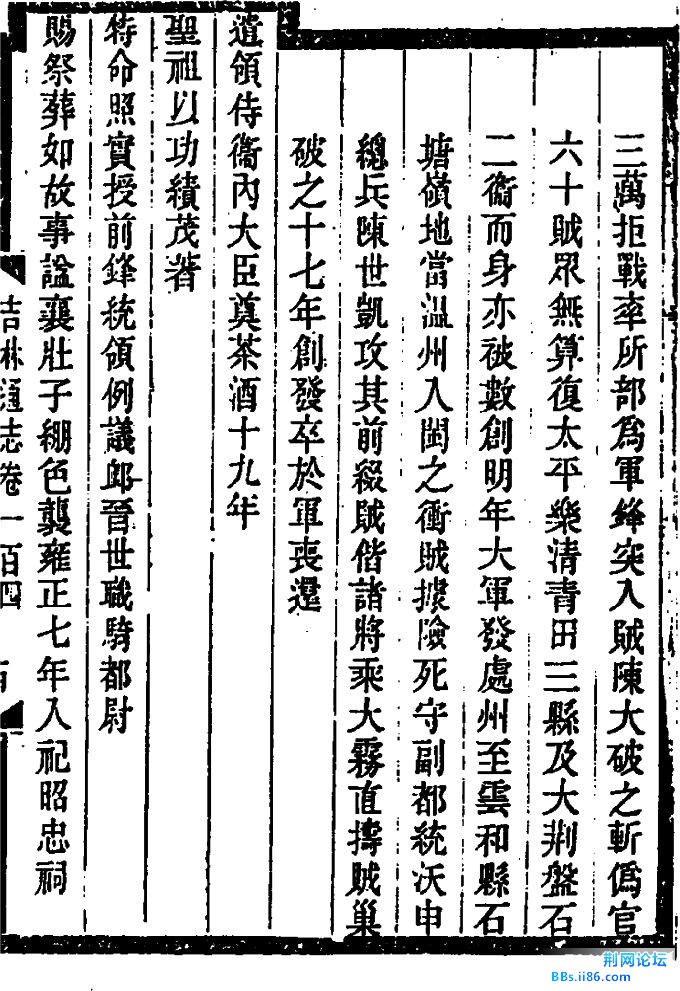 三萬拒戰率所部爲軍鋒突入賊陳大破之斬僞官
六十賊眾無算復太平樂清靑田三縣及大荆盤石
二衞而身亦被數創明年大軍發處州至雲和縣石
塘嶺地當溫州入閩之衝賊據險死守副都統沃申
總兵陳世凱攻其前綴賊偕諸將乘大霧直擣賊巢
破之十七年創發卒於軍喪還
遣領侍衞內大臣奠茶酒十九年
聖祖以功績茂著
特命照實授前鋒統領例議卹晉世職騎都尉
賜祭葬如故事諡襄壯子綳色襲雍正七年入祀昭忠祠
吉林通志卷一百四
荆网论坛
BBs.ii86.com